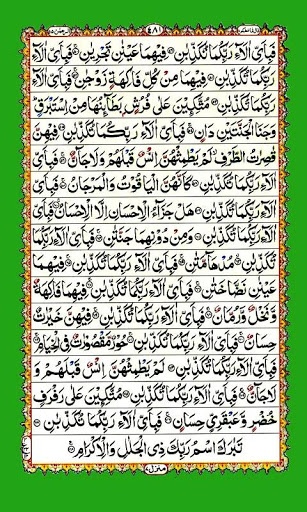 ٤٨١
فَبِاَيِّ اٰلَآءِ رَبِّكُمَا تُكَذِّبٰنِ۝ فِيْهِمَا عَيْنٰنِ تَجْرِيٰنِ۝ فَبِاَيِّ اٰلَآءِ
رَبِّكُمَا تُكَذِّبٰنِ۝ فِيْهِمَا مِنْ كُلِّ فَاكِهَةٍ زَوْجٰنِ۝ فَبِاَيِّ اٰلَآءِ
رَبِّكُمَا تُكَذِّبٰنِ۝ مُتَّكِـِٕيْنَ عَلٰى فُرُشٍۭ بَطَآئِنُهَا مِنْ اِسْتَبْرَقٍ
وَجَنَا الْجَنَّتَيْنِ دَانٍ۝ فَبِاَيِّ اٰلَآءِ رَبِّكُمَا تُكَذِّبٰنِ۝ فِيْهِنَّ
قٰصِرٰتُ الطَّرْفِ لَمْ يَطْمِثْهُنَّ اِنْسٌ قَبْلَهُمْ وَلَا جَآنٌّ۝ فَبِاَيِّ
اٰلَآءِ رَبِّكُمَا تُكَذِّبٰنِ۝ كَاَنَّهُنَّ الْيَاقُوْتُ وَالْمَرْجَانُ۝ فَبِاَيِّ
اٰلَآءِ رَبِّكُمَا تُكَذِّبٰنِ۝ هَلْ جَزَآءُ الْاِحْسَانِ اِلَّا الْاِحْسَانُ۝ فَبِاَيِّ
اٰلَآءِ رَبِّكُمَا تُكَذِّبٰنِ۝ وَمِنْ دُوْنِهِمَا جَنَّتٰنِ۝ فَبِاَيِّ اٰلَآءِ رَبِّكُمَا
تُكَذِّبٰنِ۝ مُدْهَآمَّتٰنِ۝ فَبِاَيِّ اٰلَآءِ رَبِّكُمَا تُكَذِّبٰنِ۝ فِيْهِمَا
عَيْنٰنِ نَضَّاخَتٰنِ۝ فَبِاَيِّ اٰلَآءِ رَبِّكُمَا تُكَذِّبٰنِ۝ فِيْهِمَا فَاكِهَةٌ
وَّنَخْلٌ وَّرُمَّانٌ۝ فَبِاَيِّ اٰلَآءِ رَبِّكُمَا تُكَذِّبٰنِ۝ فِيْهِنَّ خَيْرٰتٌ
حِسَانٌ۝ فَبِاَيِّ اٰلَآءِ رَبِّكُمَا تُكَذِّبٰنِ۝ حُوْرٌ مَّقْصُوْرٰتٌ فِي الْخِيَامِ۝
فَبِاَيِّ اٰلَآءِ رَبِّكُمَا تُكَذِّبٰنِ۝ لَمْ يَطْمِثْهُنَّ اِنْسٌ قَبْلَهُمْ وَ
لَا جَآنٌّ۝ فَبِاَيِّ اٰلَآءِ رَبِّكُمَا تُكَذِّبٰنِ۝ مُتَّكِـِٕيْنَ عَلٰى رَفْرَفٍ
خُضْرٍ وَّعَبْقَرِيٍّ حِسَانٍ۝ فَبِاَيِّ اٰلَآءِ رَبِّكُمَا تُكَذِّبٰنِ۝
تَبٰرَكَ اسْمُ رَبِّكَ ذِي الْجَلٰلِ وَالْاِكْرَامِ۝
منزل